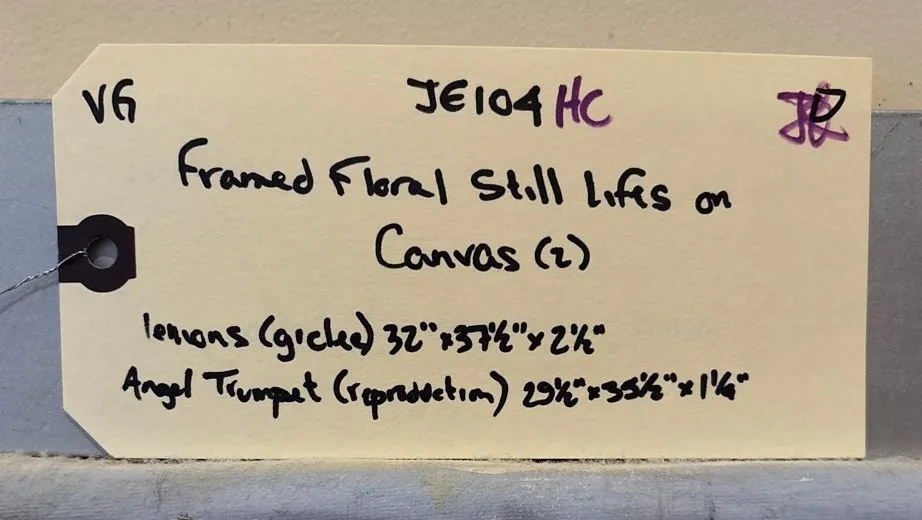 VG JE104 HC
Framed Floral Still Lifes on
Canvas (2)
lemons (giclee) 32" x 37½" x 2½"
Angel Trumpet (reproduction) 29½" x 35½" x 1¼"